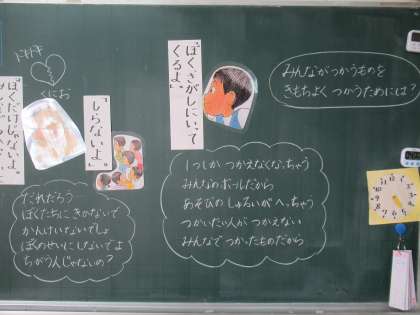 ドキドキ
くにお
「ぼくだけじゃないよ。
「しらないよ。」
「ぼくさがしにいって
くるよ。」
みんながつかうものを
きもちよく つかうためには?
だれだろう
ぼくたちに きかないで
かんけいないでしょ
ぼくのせいにしないでよ
ちがう人じゃないの?
1つしか つかえなくなっちゃう
みんなのボールだから
あそびの しゅるいが へっちゃう
つかいたい人が つかえない
みんなで つかったものだから